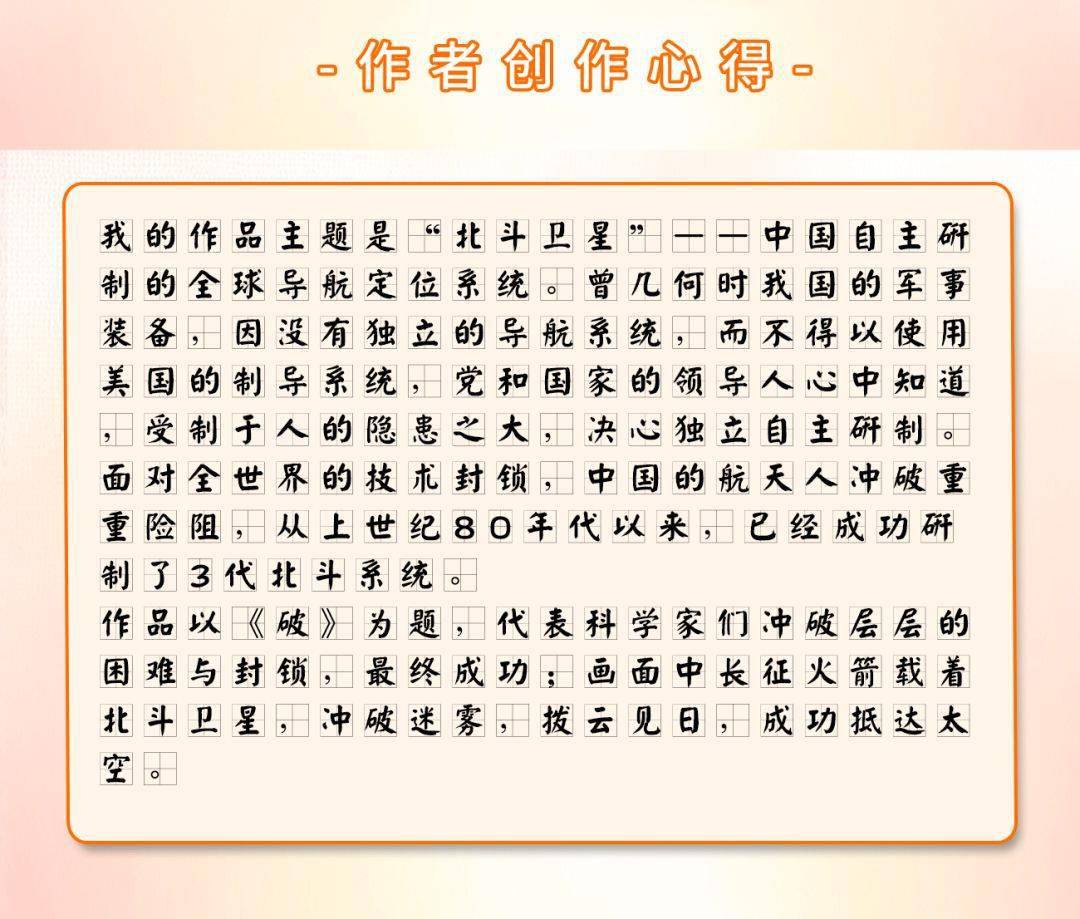 -作者创作心得-
我的作品主题是“北斗卫星”——中国自主研
制的全球导航定位系统。曾几何时我国的军事
装备,因没有独立的导航系统,而不得以使用
美国的制导系统,党和国家的领导人心中知道
,受制于人的隐患之大,决心独立自主研制。
面对全世界的技术封锁,中国的航天人冲破重
重险阻,从上世纪80年代以来,已经成功研
制了3代北斗系统。
作品以《破》为题,代表科学家们冲破层层的
困难与封锁,最终成功;画面中长征火箭载着
北斗卫星,冲破迷雾,拨云见日,成功抵达太
空。